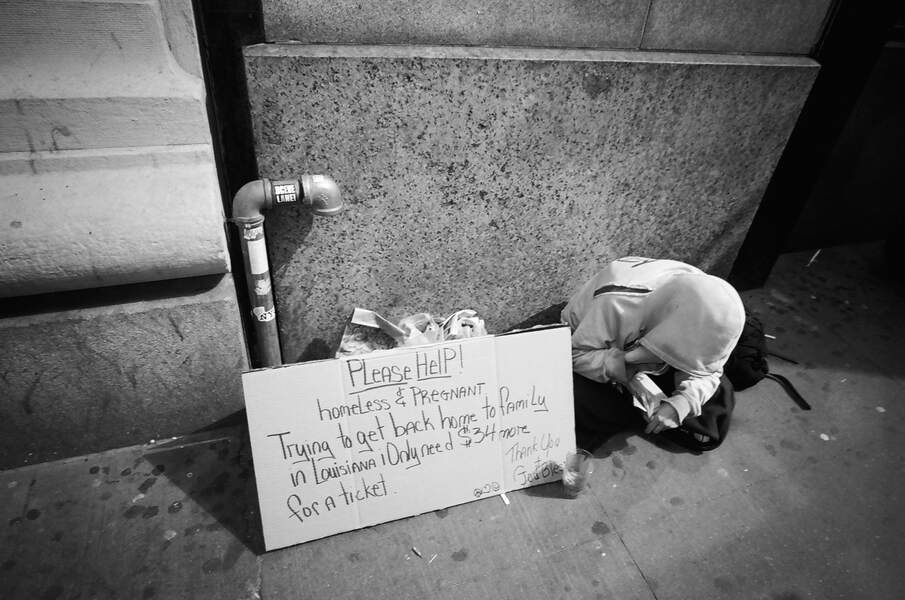 DCEVE
LANE!
PLease HeLP!
homeLess & PREGNANT
Trying to get back home to family
in Louisiana ¡ Only need $34 more
for a ticket.
Thank You
&